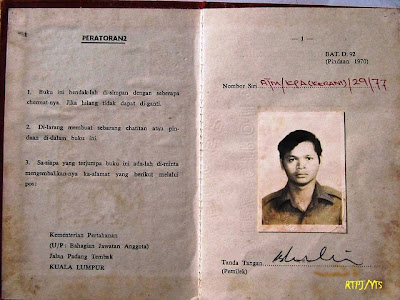 PERATORAN2
1. Buku ini hendak-lah di-simpan dengan seberapa
chermat-nya. Jika hilang tidak dapat di-ganti.
2. Di-larang membuat sebarang chatitan atau pin-
daan di-dalam buku ini.
3. Sa-siapa yang terjumpa buku ini ada-lah di-minta
mengembalikan-nya ka-alamat yang berikut melalui
pos:
Kementerian Pertahanan
(U/P: Bahagian Jawatan Anggota)
Jalan Padang Tembak
KUALA LUMPUR
— 1 —
BAT. D. 92
(Pindaan 1970)
Nombor Siri ATM/KPA(KERANI)/29/77
Tanda Tangan
(Pemilek)
RTPJ/YTS